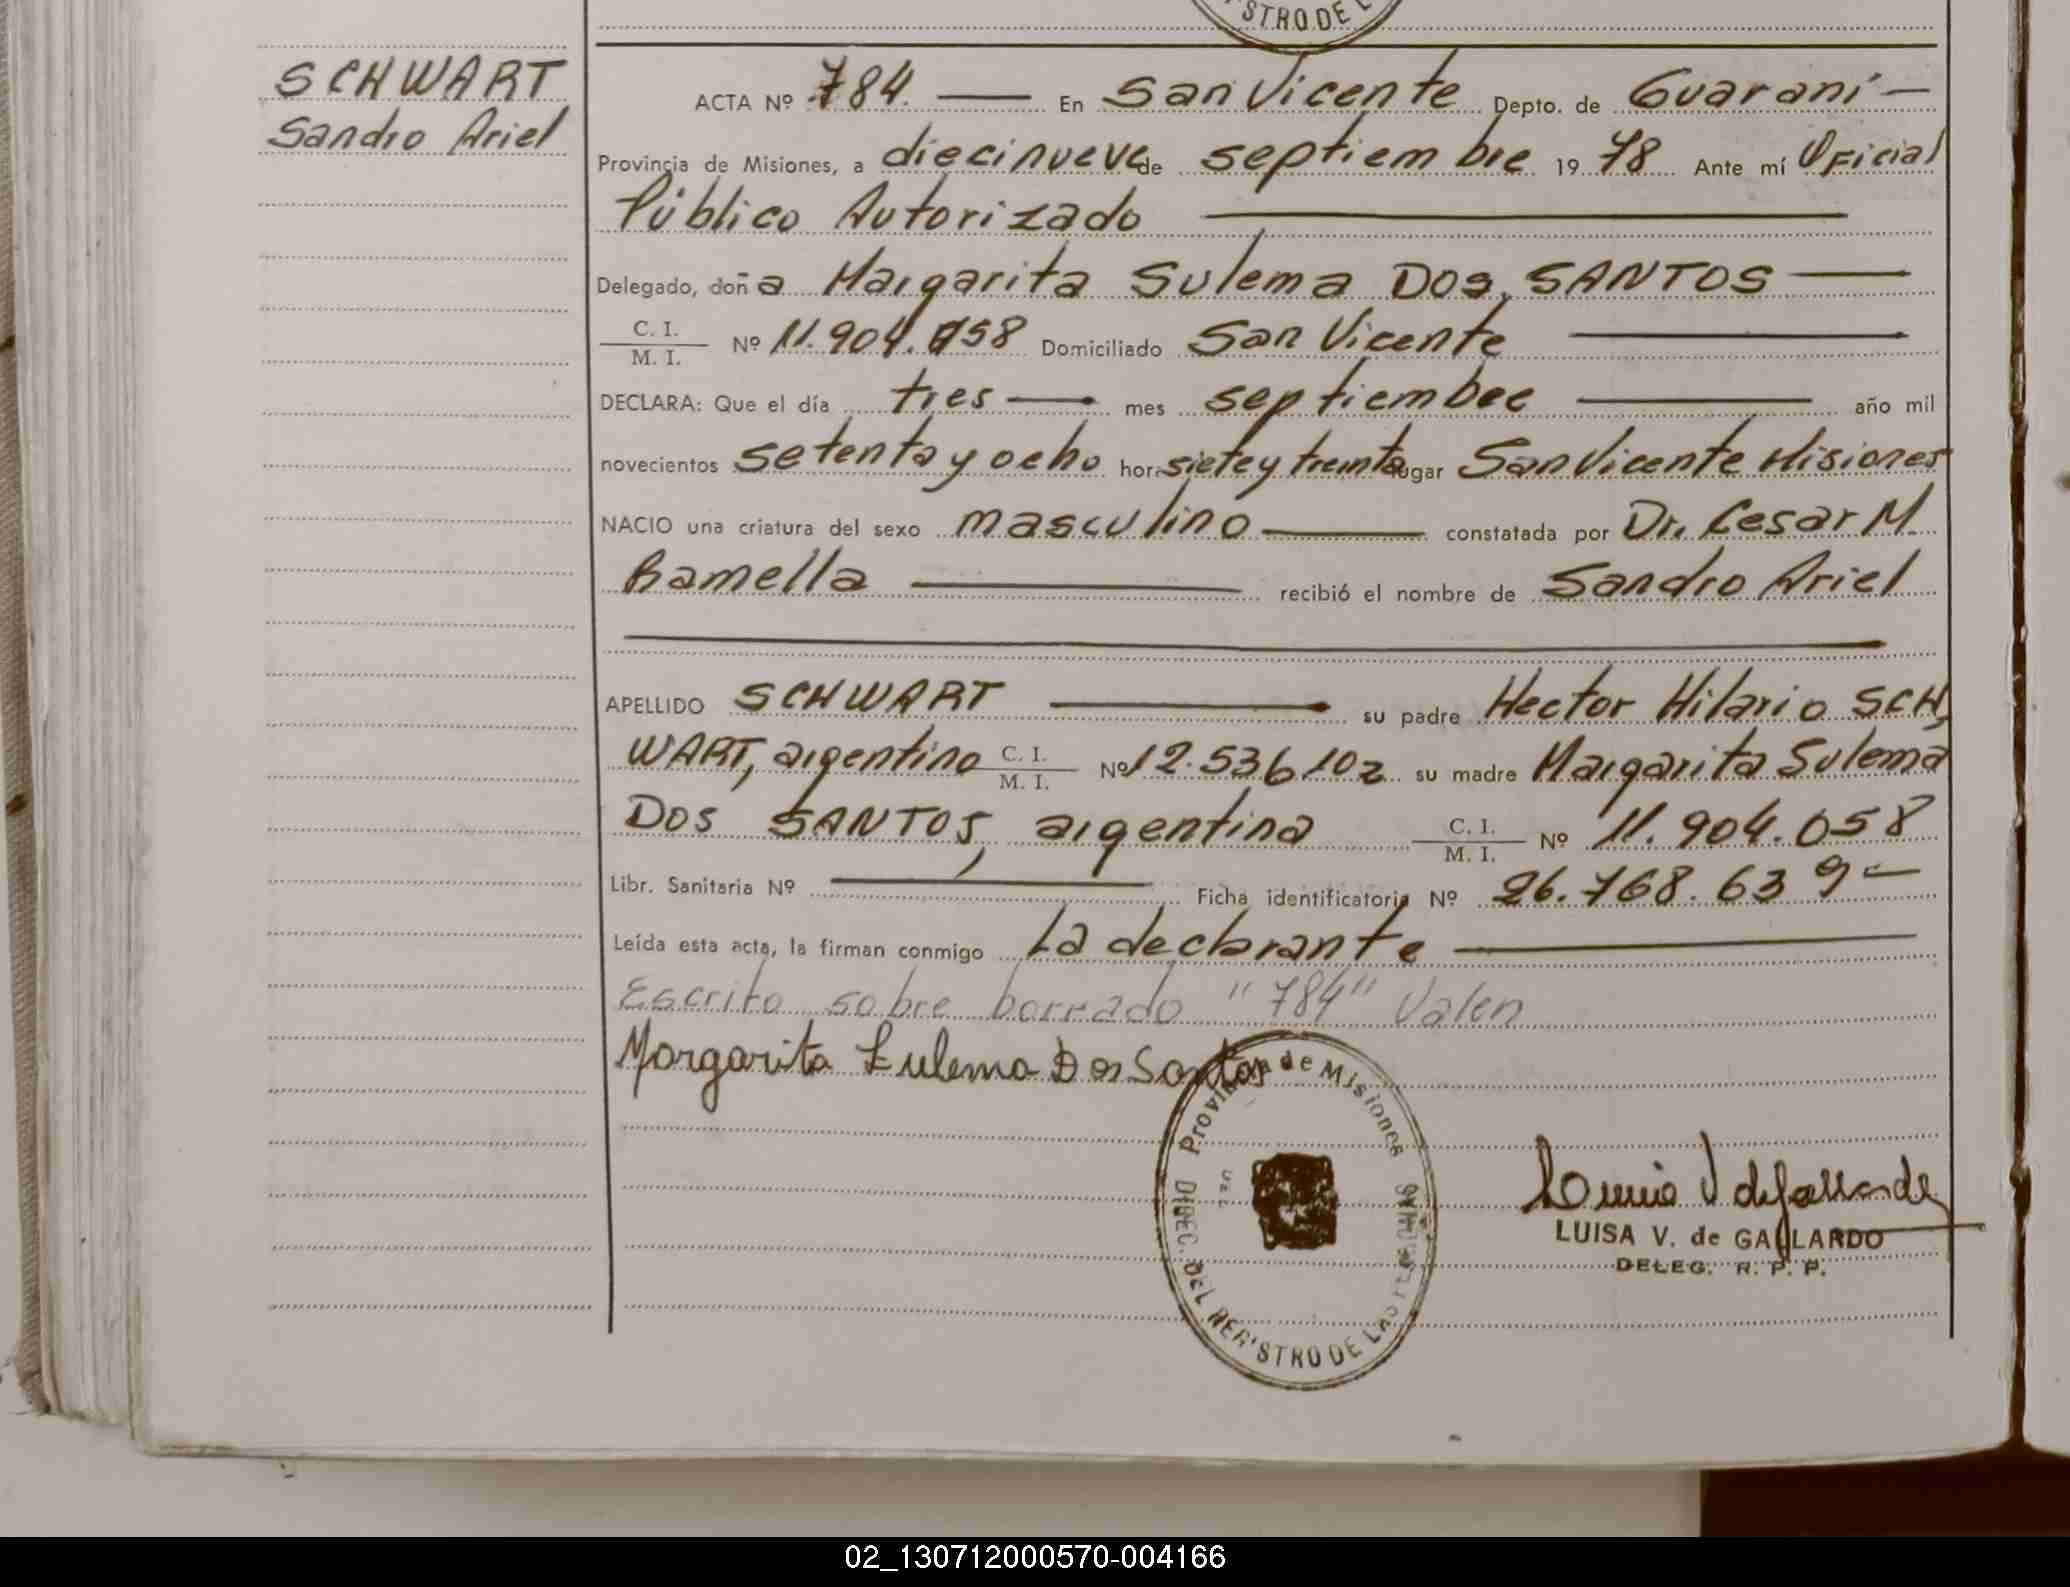 STRO DE L
SCHWART
Sandro Ariel
ACTA Nº 784. En San Vicente Depto. de Guaraní
Provincia de Misiones, a diecinueve de septiembre 1978 Ante mí Oficial
Público Autorizado
Delegado, doña Margarita Sulema DOS SANTOS
C. I.
M. I. Nº 11.904.058 Domiciliado San Vicente
DECLARA: Que el día tres mes septiembre año mil
novecientos setenta y ocho hor. siete y treinta lugar San Vicente Misiones
NACIO una criatura del sexo masculino constatada por Dr. Cesar M.
Ramella recibió el nombre de Sandro Ariel
APELLIDO SCHWART su padre Hector Hilario SCH,
WART, argentino C. I. M. I. Nº 12.536102 su madre Margarita Sulema
DOS SANTOS, argentina C. I. M. I. Nº 11.904.058
Libr. Sanitaria Nº Ficha identificatoria Nº 26.768.639
Leída esta acta, la firman conmigo La declarante
Escrito sobre borrado "784" Valen
Margarita Zulema Dos Santos
Provincia de Misiones
DIREC. DEL REGISTRO DE LAS
LUISA V. de GALLARDO
DELEG. R. P. P.
02_130712000570-004166